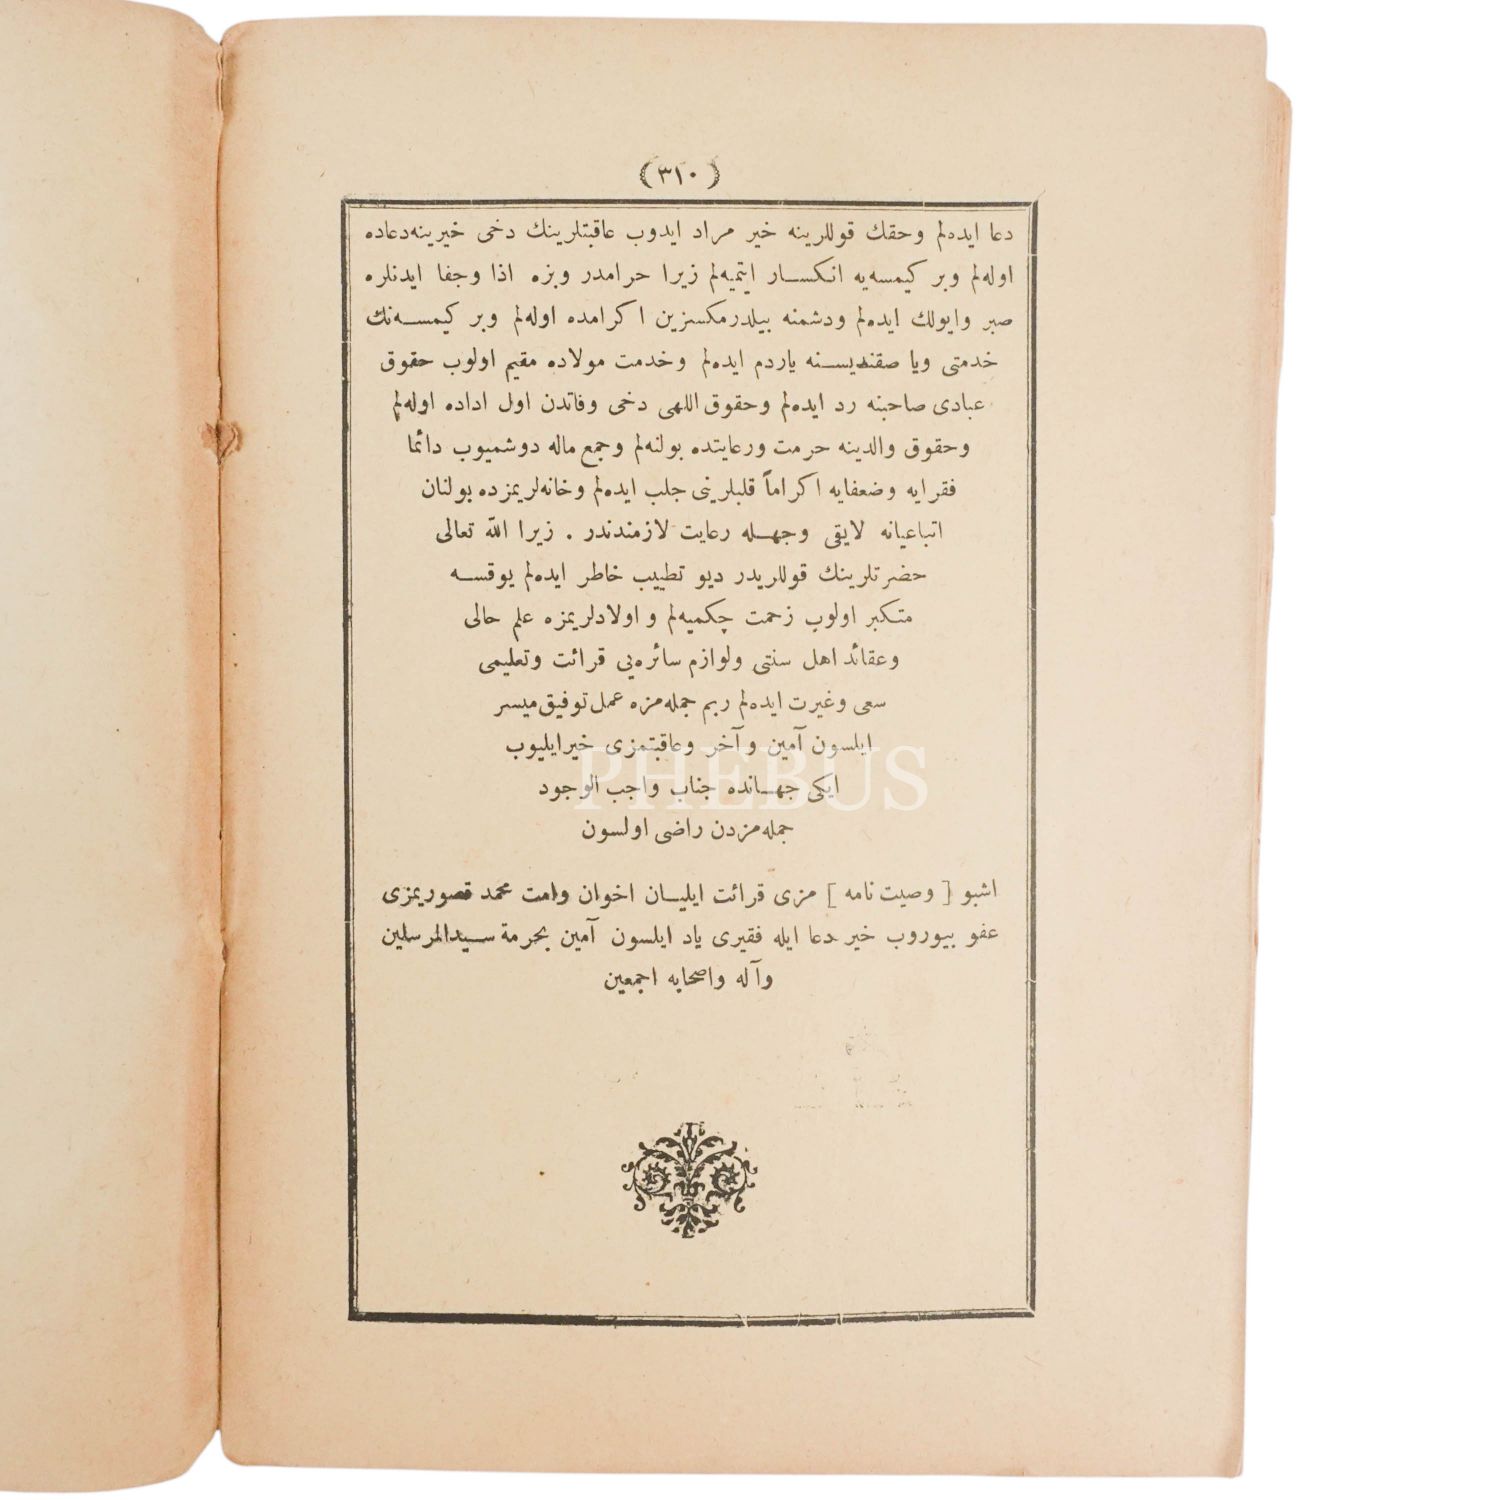 (٣١٠)
دعا ایده‌لم وحقك قوللرینه خیر مراد ایدوب عاقبتلرینك دخی خیرینه دعاده
اوله‌لم وبر کیمسه‌یه انکسار ایتمیه‌لم زیرا حرامدر وبزه اذا وجفا ایدنلره
صبر وایولك ایده‌لم ودشمنه بیلدرمکسزین اکرامده اوله‌لم وبر کیمسه‌نك
خدمتی ویا صقندیسنه یاردم ایده‌لم وخدمت مولاده مقیم اولوب حقوق
عبادی صاحبنه رد ایده‌لم وحقوق اللهی دخی وفاتدن اول اداده اوله‌لم
وحقوق والدینه حرمت ورعایتده بولنه‌لم وجمع ماله دوشمیوب دائما
فقرایه وضعفایه اکراماً قلبلرینی جلب ایده‌لم وخانه‌لریمزده بولنان
اتباعیانه لایقی وجهله رعایت لازمندندر . زیرا الله تعالی
حضرتلرینك قوللریدر دیو تطییب خاطر ایده‌لم یوقسه
متکبر اولوب زحمت چکمیه‌لم و اولادلریمزه علم حالی
وعقائد اهل سنتی ولوازم سائره‌یی قرائت وتعلیمی
سعی وغیرت ایده‌لم ربم جمله‌مزه عمل توفیق میسر
ایلسون آمین وآخر وعاقبتمزی خیرایلیوب
ایکی جهانده جناب واجب الوجود
جمله‌مزدن راضی اولسون
اشبو [ وصیت نامه ] مزی قرائت ایلیان اخوان وامت محمد قصوریمزی
عفو بیوروب خیر دعا ایله فقیری یاد ایلسون آمین بحرمة سیدالمرسلین
وآله واصحابه اجمعین
PHEBUS